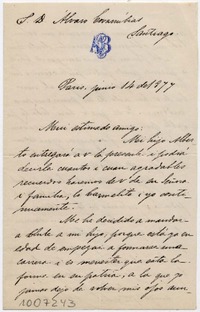 S D Álvaro Covarrubias
Santiago
Paris, junio 14 de 1877
Mui estimado amigo:
Mi hijo Alber
to entregará a V la presente i podrá
decirle cuantos i cuan agradables
recuerdos hacemos de V de su Señora
i familia, la Carmelita i yo conti
nuamente.
Me he decidido a mandar
a Chile a mi hijo, porque está ya en
edad de empezar a formarse una
carrera i es menester que esta la
forme en su patria, a la que yo
jamas dejo de volver mis ojos aun-
1007243